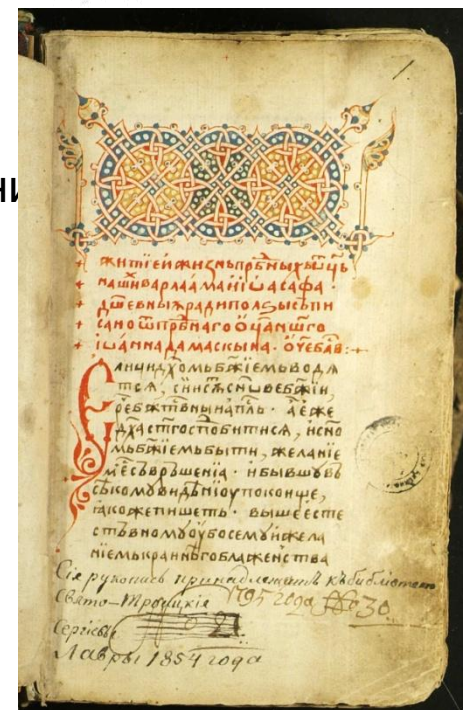 ни
1
+ житїе и жизнь прп҃бныхь ѿц҃ь
+ наших варлаама и їѡасафа ·
+ дш҃евныѧ ради ползы съпи
+ сано ѿ прп҃бнаго оц҃а нш҃го
+ їѡанна дамаскына · оч҃е бл҃в :+
Елици дх҃омь бж҃їемь водѧ
тсѧ, сїи сѫть сн҃ове бж҃їи,
рече бж҃твны ап҃ль · а еже
дх҃а ст҃го сподобитисѧ, и сно
мь бж҃їемь быти, желанїе
мь есть съвръшенїа · и бывшу въ
сѣкому видѣнїю упоконше,
ꙗкоже пишеть · выше есте
ствьному оубо семꙋ и жела
нїемь краинѣго блаженства
Сія рукопись принадлежитъ къ библіотекѣ
Свято-Троицкія 1795 года № 30
Сергіевы № 2
Лавры 1854 года